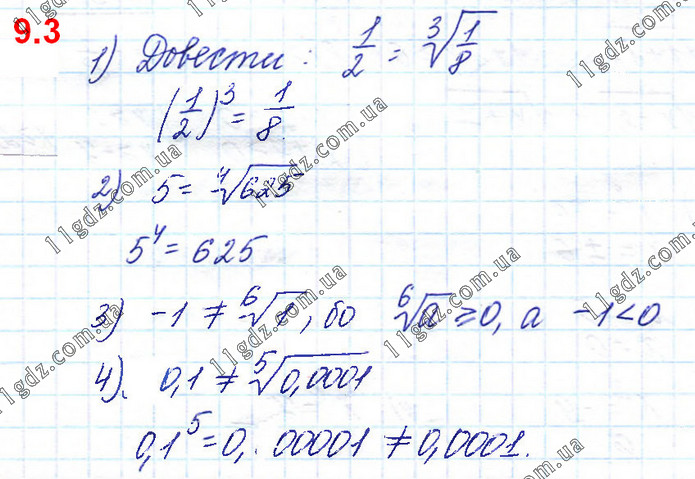 9.3
1) Довести: 1/2 = ∛(1/8)
(1/2)³ = 1/8.
2) 5 = ⁴√625
5⁴ = 625
3) -1 ≠ ⁶√1, бо ⁶√a ≥ 0, а -1 < 0
4). 0,1 ≠ ⁵√0,0001
0,1⁵ = 0,.00001 ≠ 0,0001.
11gdz.com.ua
11gdz.com.ua
11gdz.com.ua
11gdz.com.ua
11gdz.com.ua
11gdz.com.ua
11gdz.com.ua
11gdz.com.ua
11gdz.com.ua